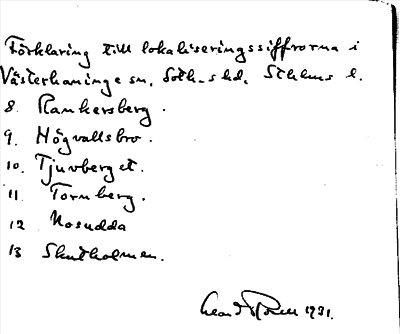 Förklaring till lokaliseringssiffrorna i
Västerhaninge sn, Soth-s hd, Sthlms l.
8. Rankersberg.
9. Högvallsbro.
10. Tjuvberget.
11 Tornberg.
12 Nosudda
13 Skutholmen.
1931.